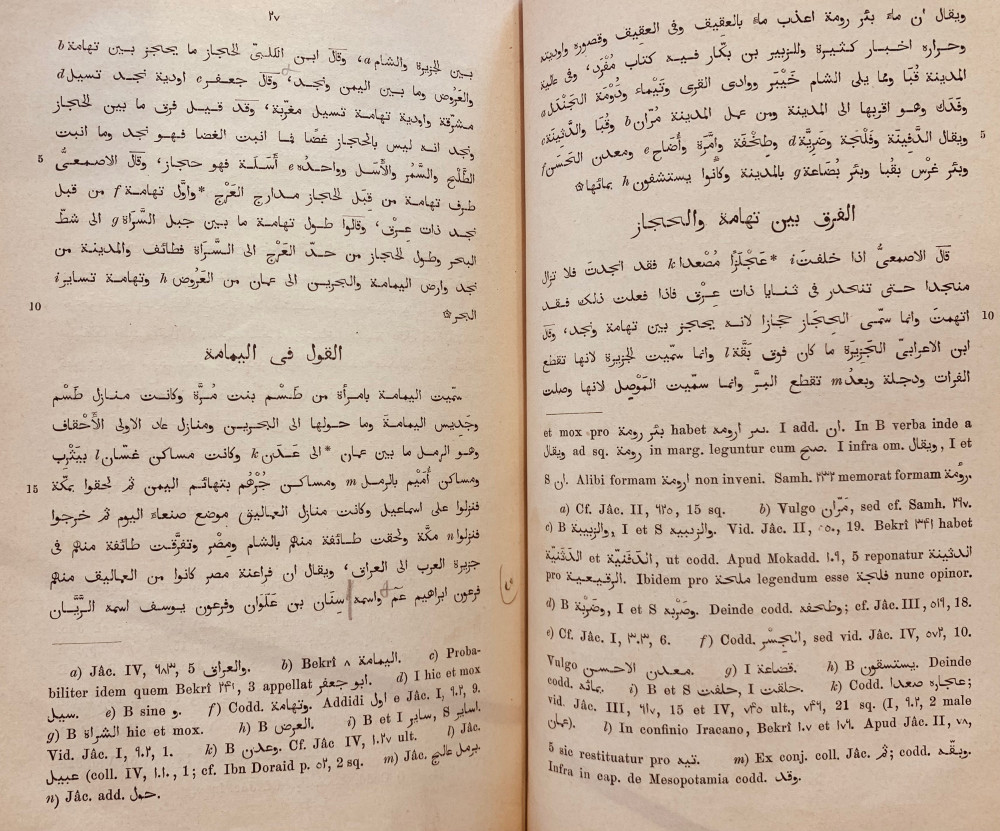 ويقال ان ماء بئر رومة اعذب ماء بالعقيف وفى العقيف وقصوره واوديته
وحراره اخبار كثيرة وللزبير بن بكّار فيه كتاب مُفْرَد، وفى عالية
المدينة قُبَا ومما يلى الشام خَيْبَر ووادى القرى وتَيْماء ودُوْمَة الجَنْدَل a
وفَدَك وهو اقربها الى المدينة ومن عمل المدينة مَرّان b وقُبَا والدَّثِينَة c
ويقال الدَّفِينَة وفَلْجَة وضَرِيَّة d وطِخْفَة وأَمَّرَة وأُضَاخ e ومعدن الحَسَن f
وبئر غَرْس بقُبا وبئر بُضَاعَة g بالمدينة وكانوا يستشفون h بمائها ۞
5
الفرق بين تهامة والحجاز
قال الاصمعىُّ اذا خلفتَ i *عَجْلَزًا مُصْعدا k فقد انجدتَ فلا تزال
منجدا حتى تنحدر فى ثنايا ذات عِرْق فاذا فعلت ذلك فقد
اتهمتَ وانما سمّى الحِجَاز حِجَازا لانه يحجز بين تهامة ونجد، وقال
10
ابن الاعرابىّ الجَزِيرَة ما كان فوق بَقَّة l وانما سمّيت الجزيرة لانها تقطع
الفرات ودجلة وبعدُ m تقطع البرّ وانما سمّيت المَوْصِل لانها وصلت
et mox pro بئر رومة habet بير ارومة. I add. ان. In B verba inde a
ويقال ad sq. رومة in marg. leguntur cum صح. I infra om. ويقال, I et
S ان. Alibi formam ارومة non inveni. Samh. ٢٣٣ memorat formam رؤمة.
a) Cf. Jâc. II, ٦٢٥, 15 sq. b) Vulgo مَرّان, sed cf. Samh. ٢٩٧.
c) B والزبيبة, I et S والزبيبه. Vid. Jâc. II, ٥٥٠, 19. Bekrî ٣٤١ habet
الدَّثَنِيَّة et الدَّفَنِيَّة, ut codd. Apud Mokadd. ١٠٩, 5 reponatur الدثينة
pro الرقيعية. Ibidem pro ملحة legendum esse فلجة nunc opinor.
d) B وضَرْبة, I et S وضربه. Deinde codd. وطحفه; cf. Jâc. III, ٥١٩, 18.
e) Cf. Jâc. I, ٣٠٣, 6. f) Codd. الجِسْر, sed vid. Jâc. IV, ٥٧٢, 10.
Vulgo معدن الاحسن. g) I قضاعة. h) B يستسقون. Deinde
codd. بمائه. i) B et S حلفت, I حلقت. k) Codd. عجاره صعدا;
vid. Jâc. III, ٦١٧, 15 et IV, ٧٤٥ ult., ٧٤٦, 21 sq. (I, ٩٠٢, 2 male
عمان). l) In confinio Iracano, Bekrî ١٠٧ et ١٧٩. Apud Jâc. II, ٧٨,
5 sic restituatur pro تيه. m) Ex conj. coll. Jâc. ثم; codd. وبقه.
Infra in cap. de Mesopotamia codd. وقد.
٢٧
بين الجزيرة والشام a، وقال ابن الكلبىّ الحجاز ما يحجز بين تهامة b
والعَرُوض وما بين اليمن ونجد، وقال جعفر c اودية نجد تسيل d
مشرّقة واودية تهامة تسيل مغرّبة، وقد قيل فرق ما بين الحجاز
ونجد انه ليس بالحجاز غضًا فما انبت الغضا فهو نجد وما انبت
5
الطَّلْح والسَّمُر والأَسَل وواحده e أَسَلَة فهو حجاز، وقال الاصمعىُّ
طرف تهامة من قِبَل الحجاز مدارج العَرْج *واوّل تهامة f من قبل
نجد ذات عِرْق، وقالوا طول تهامة ما بين جبل السَّرَاة g الى شطّ
البحر وطول الحجاز من حدّ العَرْج الى السَّرَاة فطائف والمدينة من
نجد وارض اليمامة والبحرين الى عمان من العَرُوض h وتهامة تساير i
10
البحر ۞
القول فى اليمامة
سمّيت اليمامة بامرأة من طَسْم بنت مُرَّة وكانت منازل طَسْم
وجَدِيس اليمامةَ وما حولها الى البحرين ومنازل عاد الاولى الأَحْقاف
وهو الرمل ما بين عمان *الى عَدَن k وكانت مساكن غسّان l بيَثْرِب
15
ومساكن أُمَيْم بالرمل m ومساكن جُرْهُم بتهائم اليمن ثم لحقوا بمكّة
فنزلوا على اسماعيل وكانت منازل العماليق موضع صنعاء اليوم ثم خرجوا
فنزلوا n مكّة ولحقت طائفة منهم بالشام ومِصْر وتفرَّقت طائفة منهم فى
جزيرة العرب الى العراق، ويقال ان فراعنة مصر كانوا من العماليف منهم
فرعون ابراهيم عَم واسمه سِنَان بن عَلَوان وفرعون يوسف اسمه الرَّيَّان
a) Jâc. IV, ٦٨٣, 5 والعراق. b) Bekrî ٨ اليمامة. c) Proba-
biliter idem quem Bekrî ٢٤١, 3 appellat ابو جعفر. d) I hic et mox
سيل. e) B sine و. f) Codd. وتهامة. Addidi اول e Jâc. I, ٩٠٢, 9.
g) B الشراة hic et mox. h) B العرض. i) B et I ساير, S اساير.
Vid. Jâc. I, ٩٠٢, 1. k) B وعدن. Cf. Jâc IV, ١٠٢٧ ult. l) Jâc.
عبيل (coll. IV, ١٠١٠, 1; cf. Ibn Doraid p. ٥٢, 2 sq. m) Jâc. برمل عالج.
n) Jâc. add. حول.